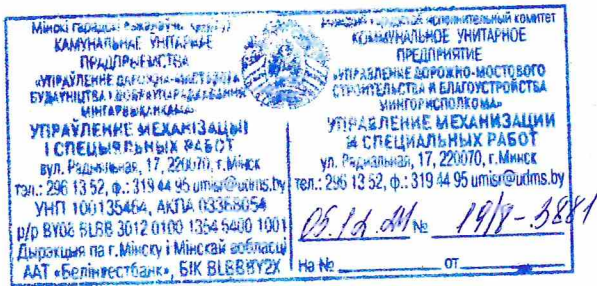 КАМУНАЛЬНАЕ УНІТАРНАЕ
ПРАДПРЫЕМСТВА
МІНГАРВЫКАНКАМА»
УПРАЎЛЕННЕ МЕХАНІЗАЦЫІ
І СПЕЦЫЯЛЬНЫХ РАБОТ
вул. Радыяльная, 17, 220070, г.Мінск
тэл.: 296 13 52, ф.: 319 44 95 umisr@udms.by
УНП 100135464, АКПА 03368054
р/р BY06 BLBB 3012 0100 1354 6400 1001
Дырэкцыя па г.Мінску і Мінскай вобласці
ААТ «Белінвестбанк», БІК BLBBBY2X
исполнительный комитет
КОММУНАЛЬНОЕ УНИТАРНОЕ
ПРЕДПРИЯТИЕ
«УПРАВЛЕНИЕ ДОРОЖНО-МОСТОВОГО
СТРОИТЕЛЬСТВА И БЛАГОУСТРОЙСТВА
МИНГОРИСПОЛКОМА»
УПРАВЛЕНИЕ МЕХАНИЗАЦИИ
И СПЕЦИАЛЬНЫХ РАБОТ
ул. Радиальная, 17, 220070, г.Минск
тел.: 296 13 52, ф.: 319 44 95 umisr@udms.by
05.12.21 № 19/8-3881
На № от